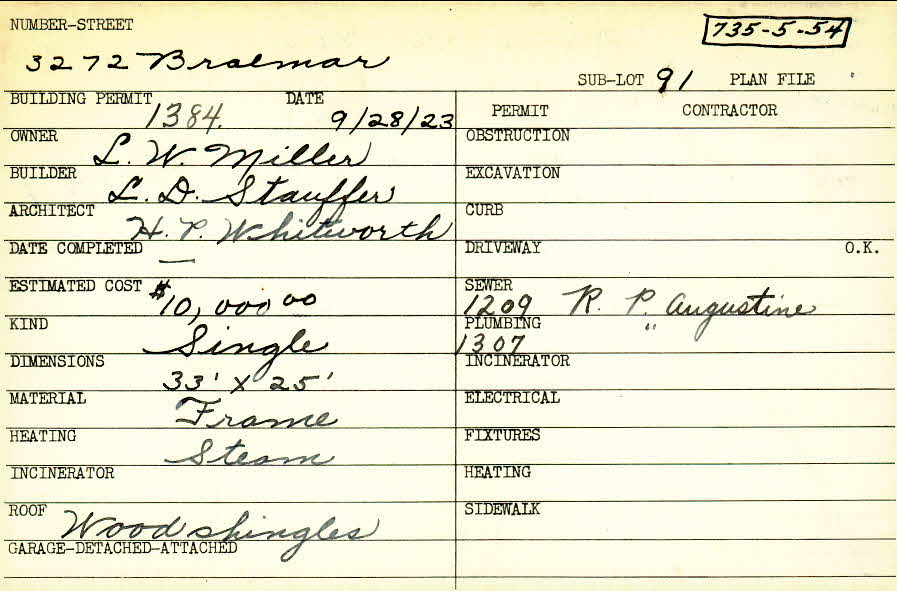 NUMBER-STREET
735-5-54
3272 Braemar
SUB-LOT 91 PLAN FILE
BUILDING PERMIT DATE
1384. 9/28/23
PERMIT CONTRACTOR
OWNER L. W. Miller
OBSTRUCTION
BUILDER L. D. Stauffer
EXCAVATION
ARCHITECT H. P. Whitworth
CURB
DATE COMPLETED —
DRIVEWAY O.K.
ESTIMATED COST $10,000 00
SEWER
1209 R. P. Augustine
KIND Single
PLUMBING "
1307
DIMENSIONS 33' x 25'
INCINERATOR
MATERIAL Frame
ELECTRICAL
HEATING Steam
FIXTURES
INCINERATOR
HEATING
ROOF Wood shingles
SIDEWALK
GARAGE-DETACHED-ATTACHED